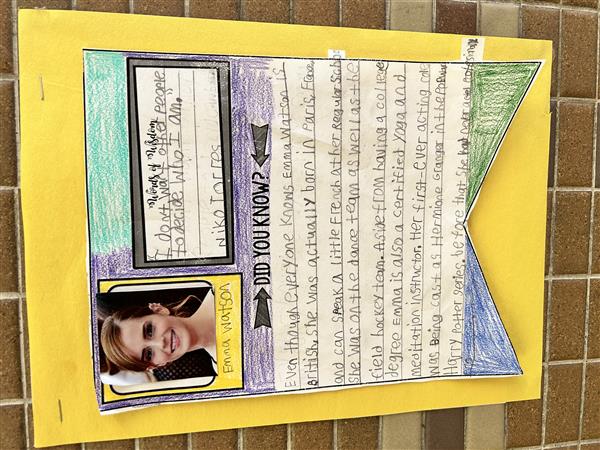 Words of Wisdom
"I don't want other people
to decide who I am."
Niko Torres
Emma Watson
DID YOU KNOW?
Even though everyone knows Emma Watson is
British, she was actually born in Paris, France,
and can speak a little French. At her Regular School
she was on the dance team as well as the
field hockey team. Aside from having a college
degree Emma is also a certified Yoga and
meditation instructor. Her first-ever acting role
was being cast as Hermione Granger in the Popular
Harry Potter series. before that she had